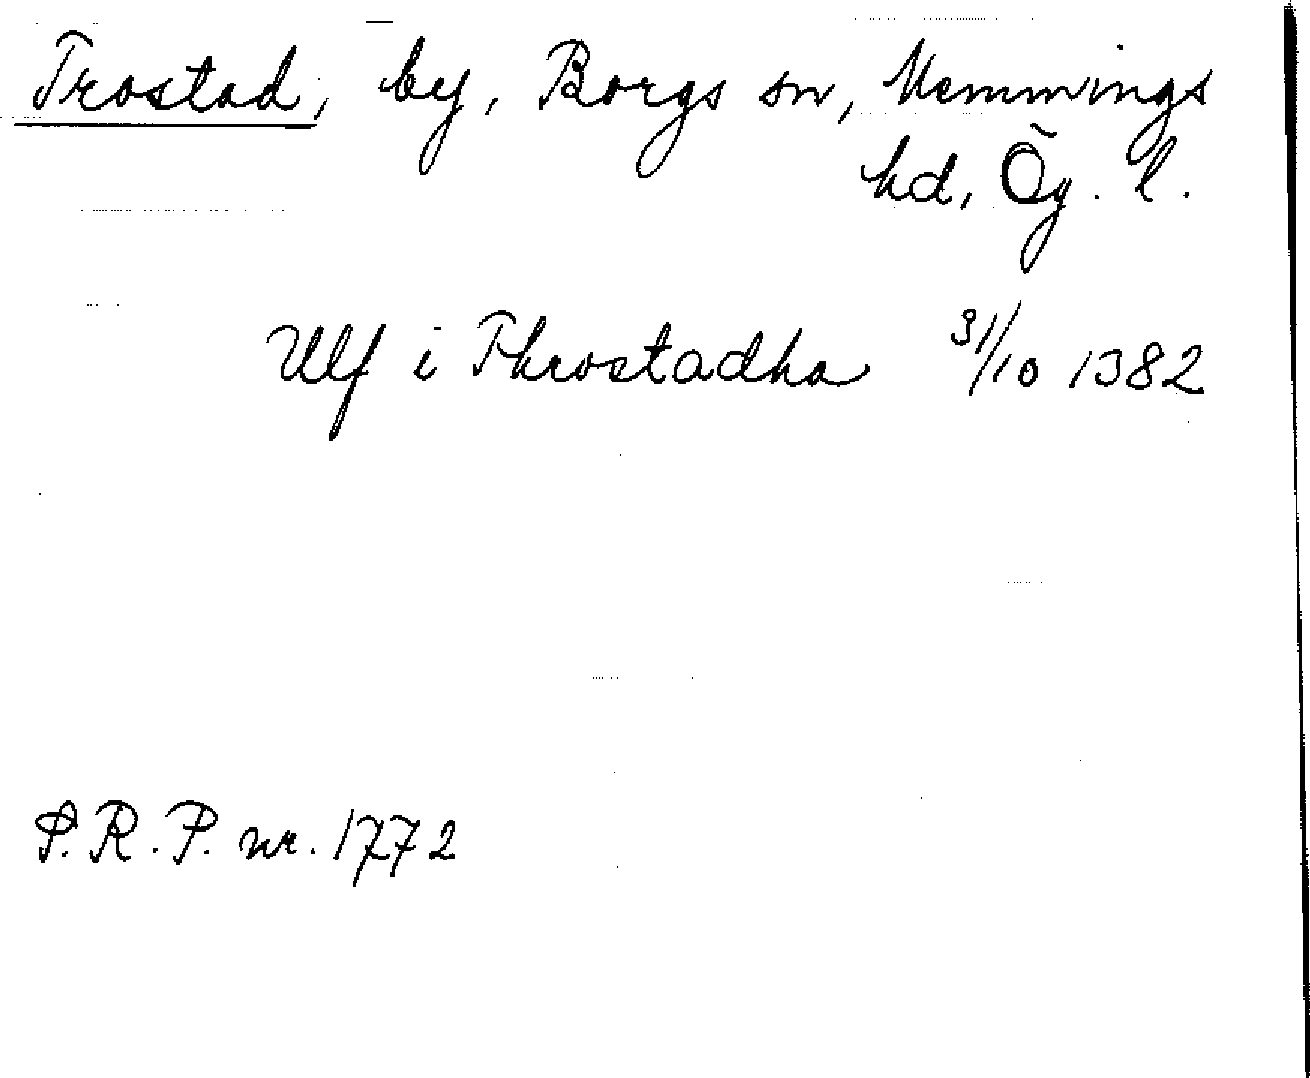 Trostad, by, Borgs sn, Memmings
hd, Ög. l.
Ulf i Throstadha 31/10 1382
S.R.P. nr. 1772